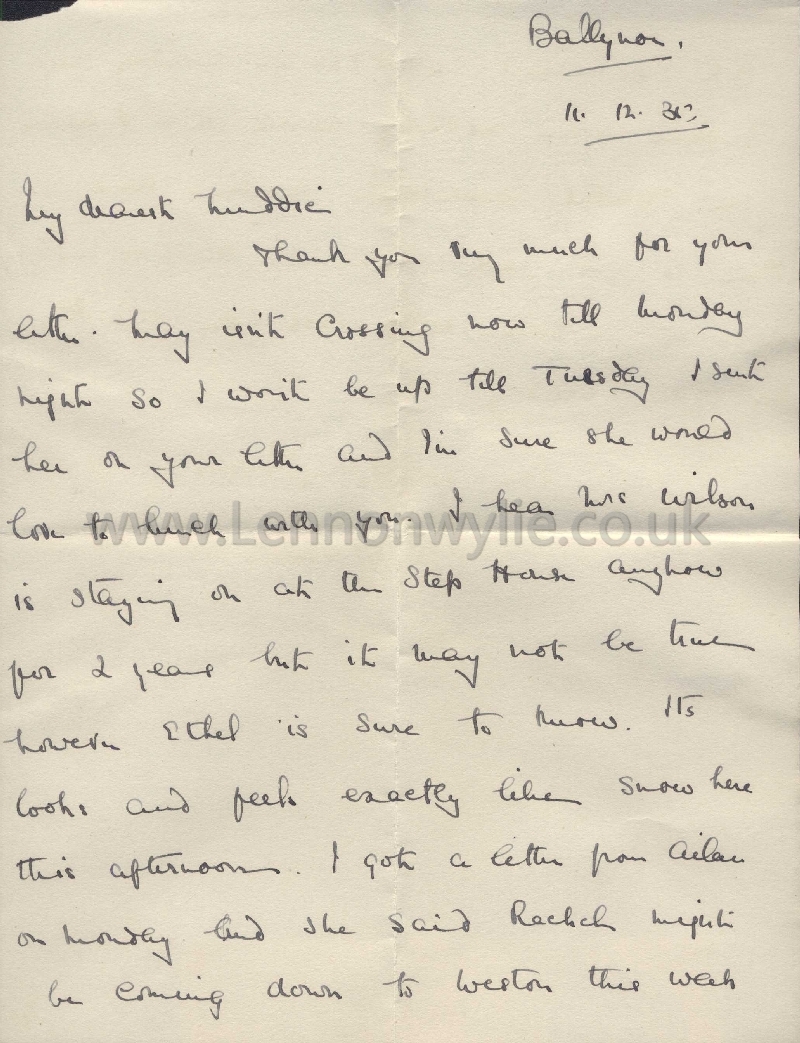 Ballynon.
11. 12. 35.
My dearest Muddie
Thank you very much for your
letter. May isn't crossing now till Monday
night so I won't be up till Tuesday I sent
her on your letter and I'm sure she would
love to lunch with you. I hear Mrs Wilson
www.Lennonwylie.co.uk
is staying on at the Step House anyhow
for 2 years but it may not be true
however Ethel is sure to know. Its
looks and feels exactly like snow here
this afternoon. I got a letter from
on Monday and she said might
be coming down to Weston this week